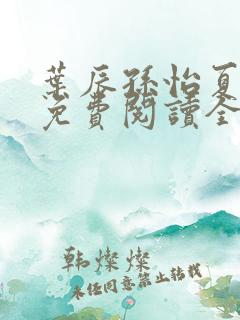 葉辰孫怡夏
免費閱讀全
韩燦燦
未经同意禁止转载